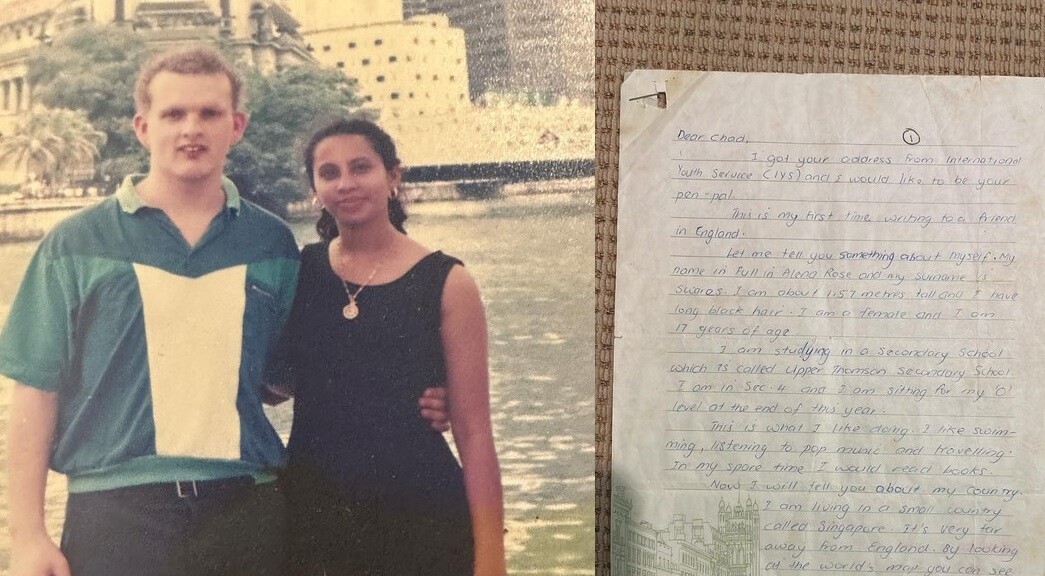 Dear Chad,
①
I got your address from International
Youth Service (IYS) and I would like to be your
pen-pal.
This is my first time writing to a friend
in England.
Let me tell you something about myself. My
name in full in Alena Rose and my surname is
Swares. I am about 1.57 metres tall and I have
long black hair. I am a female and I am
17 years of age
I am studying in a Secondary School
which is called Upper Thomson Secondary School.
I am in Sec. 4 and I am sitting for my 'O'
level at the end of this year.
This is what I like doing. I like swim-
ming, listening to pop music and travelling.
In my spare time I would read books.
Now I will tell you about my country.
I am living in a small country
called Singapore. It's very far
away from England. By looking
at the world's map you can see